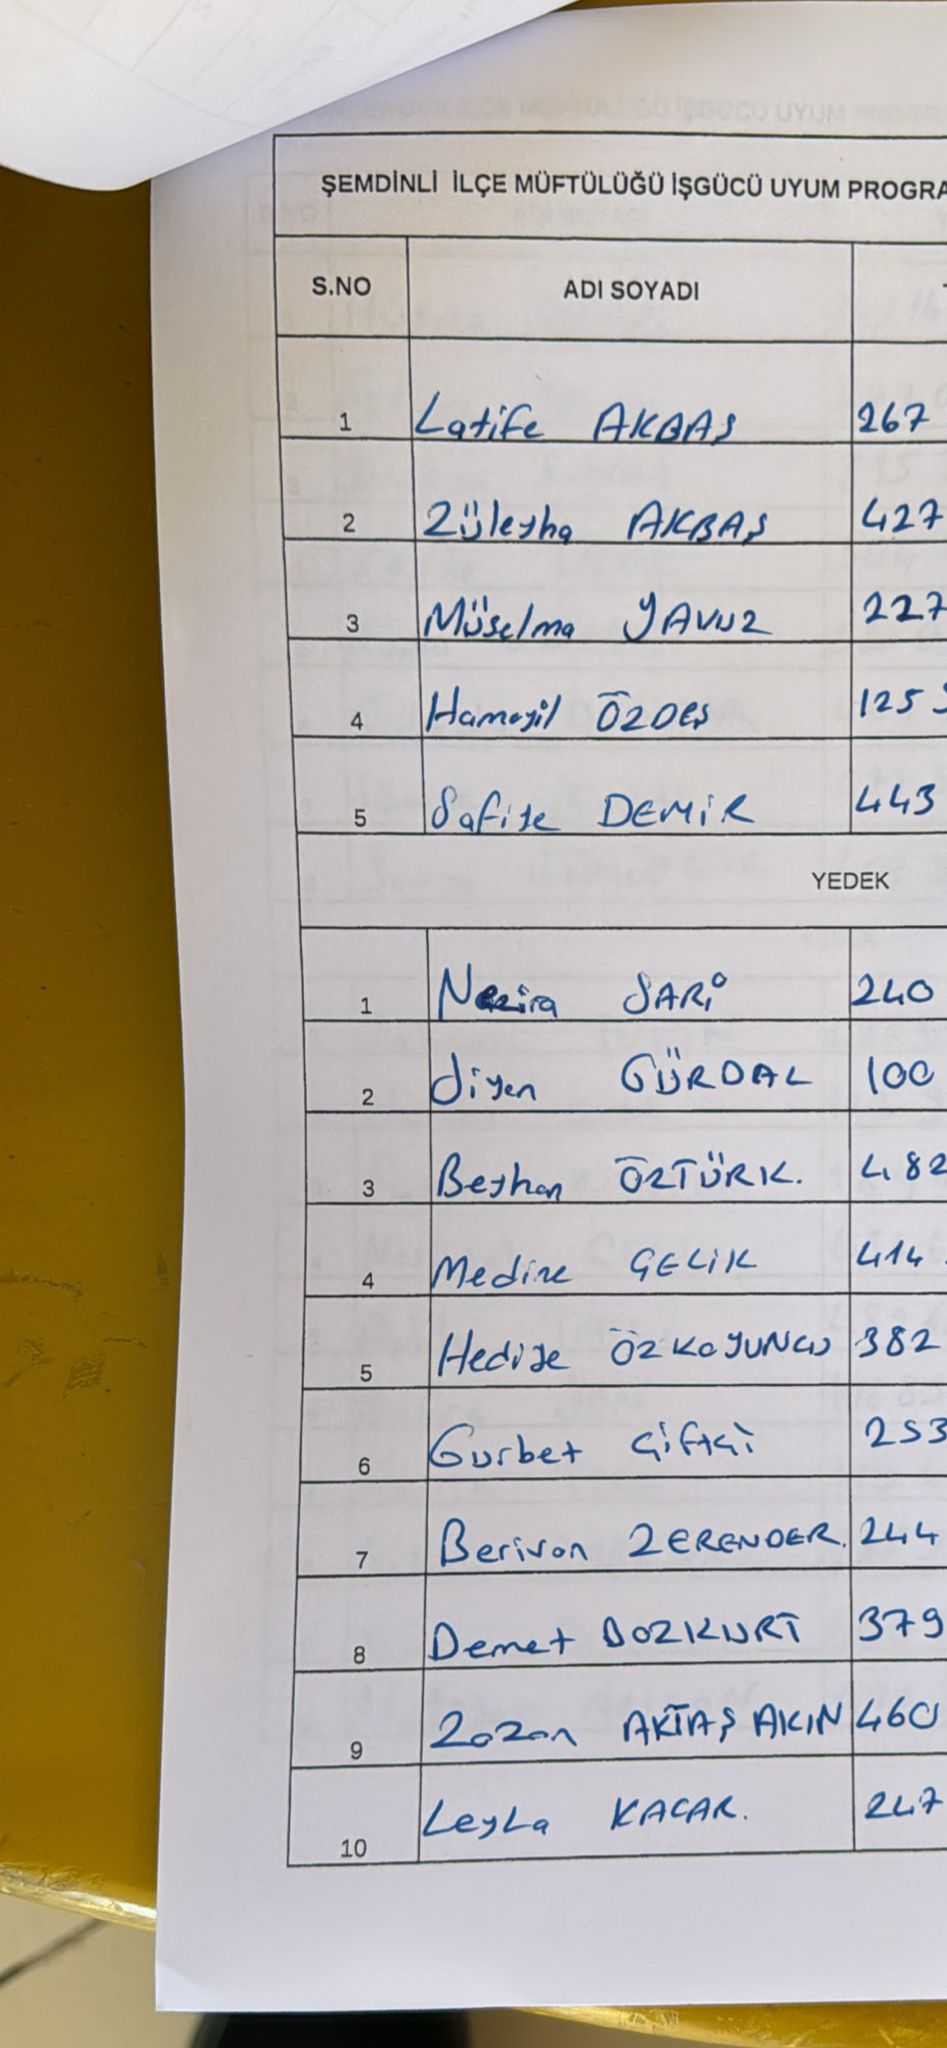 ŞEMDİNLİ İLÇE MÜFTÜLÜĞÜ İŞGÜCÜ UYUM PROGRA
S.NO ADI SOYADI
1 Latife AKBAŞ 267
2 Züleyha AKBAŞ 427
3 Müselma YAVUZ 227
4 Hamayil ÖZDEŞ 125
5 Safiye DEMİR 443
YEDEK
1 Nezira SARİ 240
2 Jiyan GÜRDAL 100
3 Beyhan ÖZTÜRK. 482
4 Medine ÇELİK 414
5 Hediye ÖZKOYUNCU 382
6 Gurbet ÇİFTÇİ 253
7 Berivan ZERENDER. 244
8 Demet BOZKURT 379
9 Zozan AKTAŞ AKIN 460
10 Leyla KACAR. 247